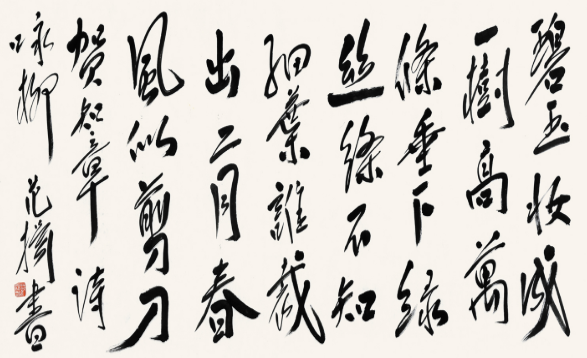 碧玉妆成
一樹高萬
條垂下綠
丝絛不知
細葉誰裁
出二月春
風似剪刀
賀知章詩
咏柳 范揚書